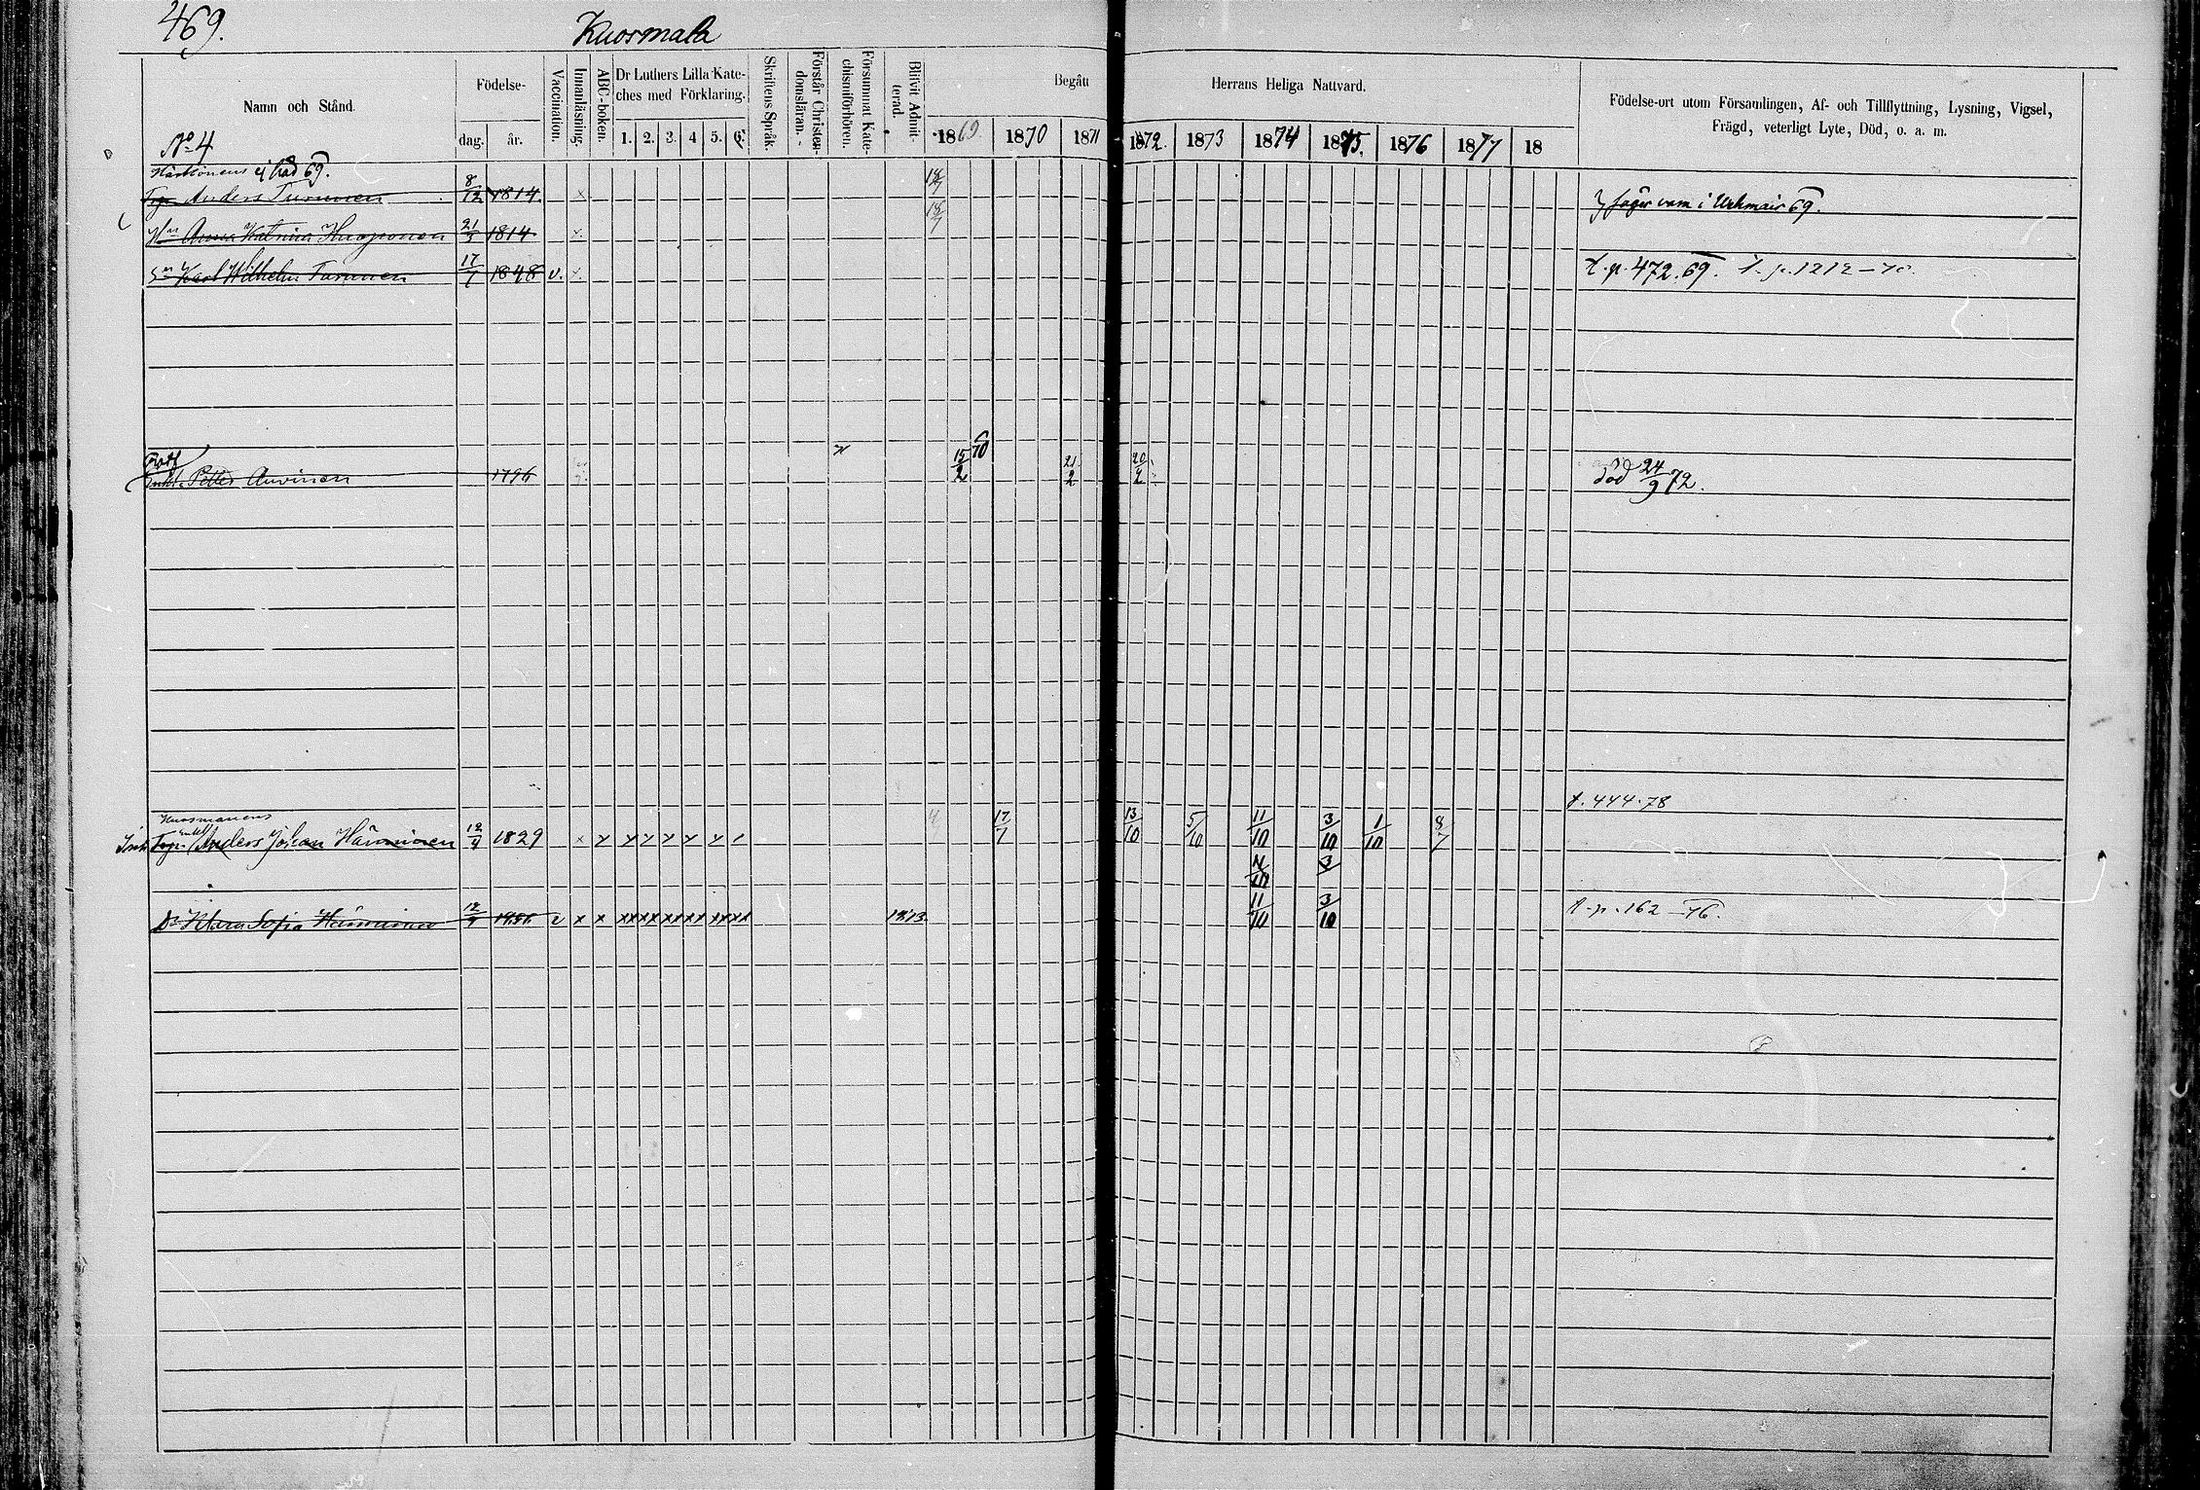 469.
Kuosmala
Namn och Stånd.
Födelse-
dag. år.
Vaccination.
Innanläsning.
ABC-boken.
Dr Luthers Lilla Kate-
ches med Förklaring.
1. 2. 3. 4 5. 6.
Skriftens Språk
Förstår Christen-
domsläran.
Försummat Kate-
chismiförhören.
Blifvit Admit-
terad.
Begått Herrans Heliga Nattvard.
1869. 1870 1871 1872. 1873 1874 1875. 1876 1877 18
Födelse-ort utom Församlingen, Af- och Tillflyttning, Lysning, Vigsel,
Frägd, veterligt Lyte, Död, o. a. m.
No 4
69.
Anders Turunen 8/12 1814 x
69.
Anna Katrina 21/3 1814 x
Karl Wilhelm Turunen 17/7 1848 v. x
t. p. 472. 69. t. p. 1212 - 70.
Petter Auvinen 1796 15/2 70 21/2 20/2
död 24/9 72.
t. 444. 78
Anders Johan Hänninen 12/9 1829 x 17/7 13/10 5/10 11/10 3/10 1/10 8/7
Dr Klara Sofia Hänninen 12/9 v x x 1873. 11/10 3/10
t. p. 162 - 76.